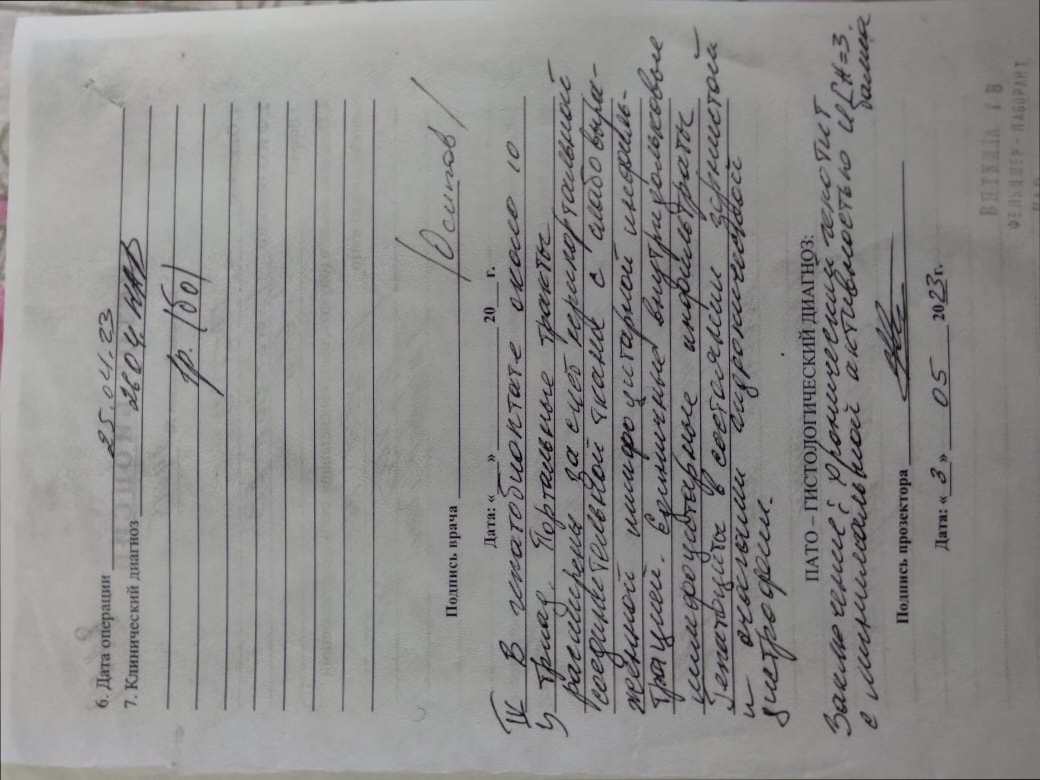 6. Дата операции 25.04.23
7. Клинический диагноз
Подпись врача /Осипов/
Дата: « » 20 г.
IV В гепатобиоптате около 10
триад. Портальные тракты
расширены за счет перипортальной
соединительной ткани с слабо выра-
женной лимфоцитарной инфиль-
трацией. Единичные внутридольковые
лимфоцитарные инфильтраты
Гепатоциты в состоянии зернистой
и очагами гидропической
дистрофии.
ПАТО – ГИСТОЛОГИЧЕСКИЙ ДИАГНОЗ:
Заключение: Хронический гепатит
с минимальной активностью ИГА=3
балла
Подпись прозектора
Дата: « 3 » 05 2023г.
ФЕЛЬДШЕР-ЛАБОРАНТ